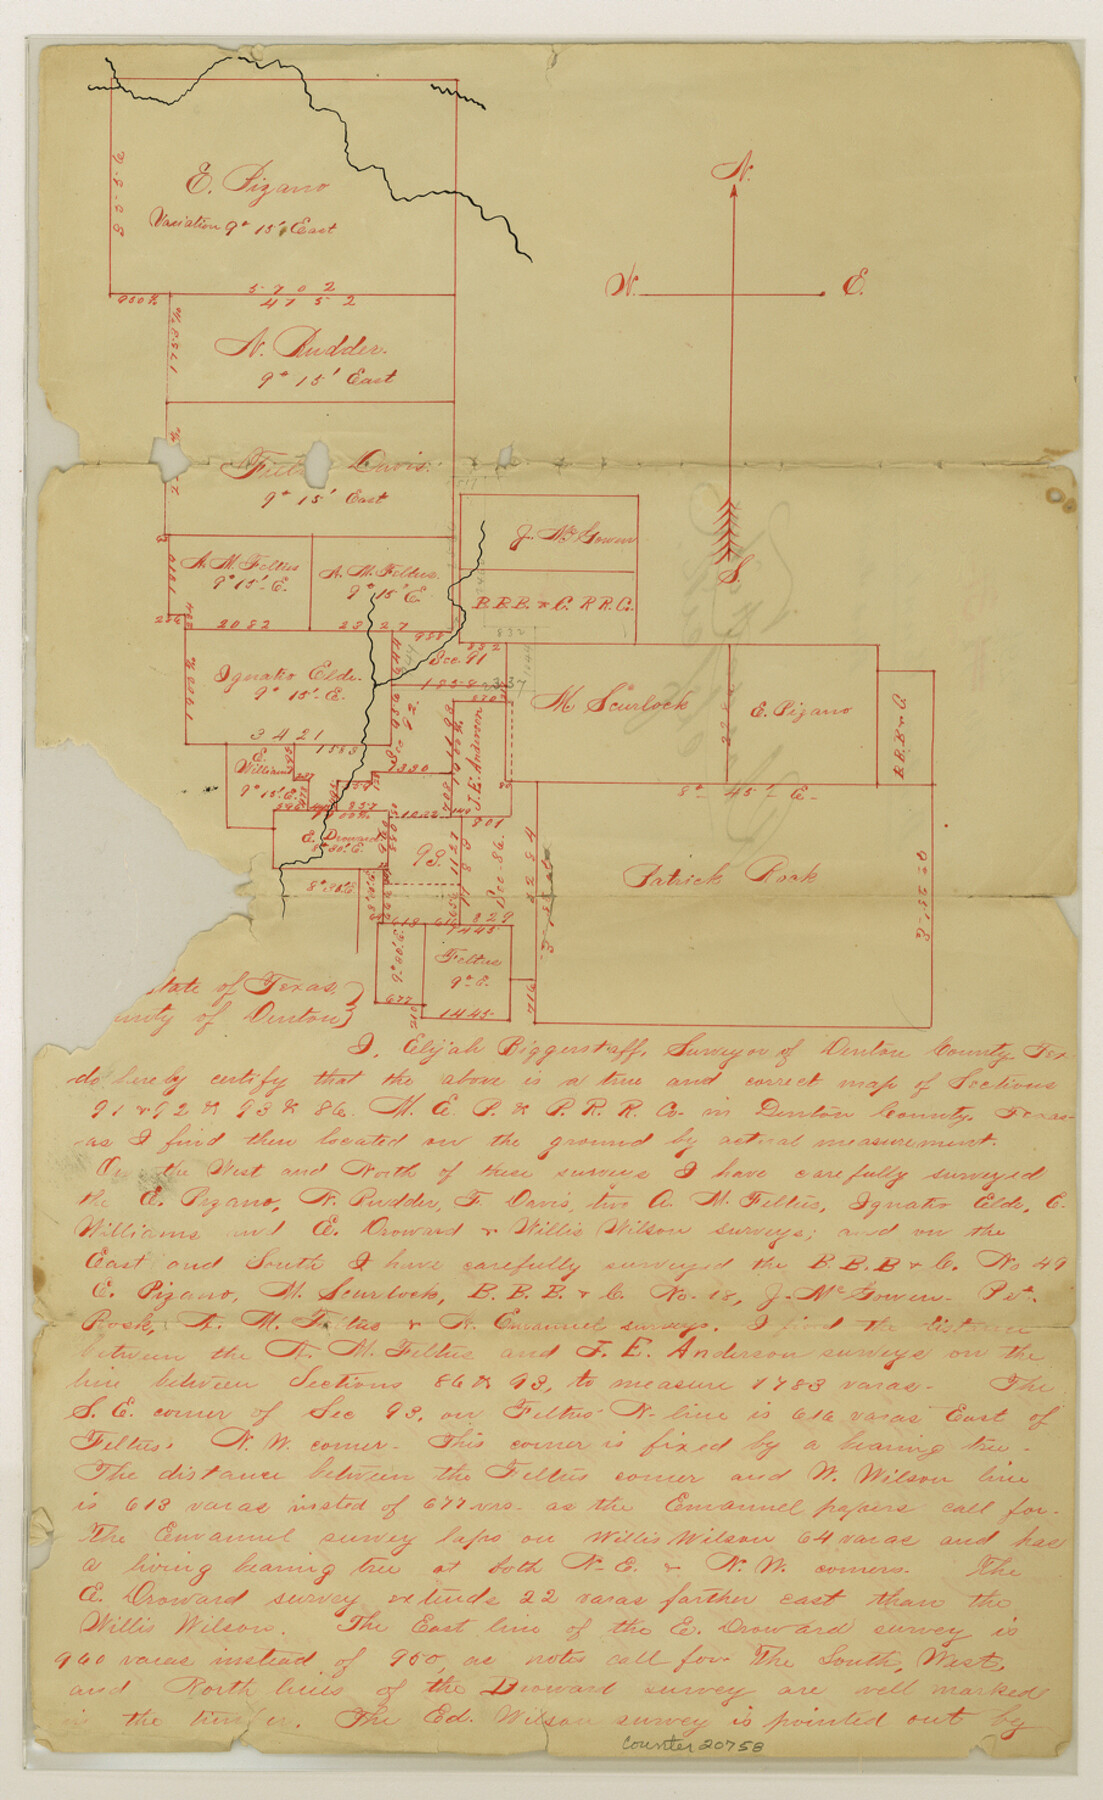 N.
W.
E.
S.
E. Pizano
Variation 9° 15' East
5702
4752
950
N. Rudder.
9° 15' East
Davis.
9° 15' East
A. M. Feltus
9° 15'- E.
A. M. Feltus.
9° 15' E.
1010
2082
2327
J. McGowen
B.B.B. & C. R R. Co.
958
832
882
Sec. 91
Ignatio Elde.
9° 15'- E.
1900
3421
1583
644
956
Sec 92.
1330
M Scurlock
E. Pizano
B.B.B & C
J. E. Anderson
E.
Williams
9° 15' E.
E. Droward
8° 30' E.
857
93.
1127
1783
Sec-86.
701
708
8°- 45'- E-
Patrick Rock
3°-25'-E
5284
613
616
829
1445
Feltus
9° E.
9° 00' E.
677
210
1445
716
State of Texas,
unty of Denton}
I, Elijah Biggerstaff, Surveyor of Denton County Tex
do hereby certify that the above is a true and correct map of Sections
91 & 92 & 93 & 86. M. E. P. & P. R. R. Co. in Denton County, Texas-
as I find them located on the ground by actual measurement.
On the West and North of these surveys I have carefully surveyed
the E. Pizano, N. Rudder, F. Davis, two A. M. Feltus, Ignatio Elde, E.
Williams and E. Droward & Willis Wilson surveys; and on the
East and South I have carefully surveyed the B.B.B & C. No 49
E. Pizano, M. Scurlock, B. B. B. & C. No. 18, J. McGowen- Pat.
Rock, A. M. Feltus & A. Emanuel surveys. I find the distance
between the A. M. Feltus and J. E. Anderson surveys on the
line between Sections 86 & 93, to measure 1783 varas- The
S. E. corner of Sec 93, on Feltus' N-line is 616 varas East of
Feltus' N. W. corner- This corner is fixed by a bearing tree-
The distance between the Feltus corner and W. Wilson line
is 613 varas insted of 677 vrs- as the Emanuel papers call for-
The Emanuel survey laps on Willis Wilson 64 varas and has
a living bearing tree at both N-E. & N. W. corners- The
E. Droward survey extends 22 varas farther east than the
Willis Wilson. The East line of the E. Droward survey is
960 varas instead of 950, as notes call for- The South, West,
and North lines of the Droward survey are well marked
in the timber. The Ed. Wilson survey is pointed out by
Counter 20758